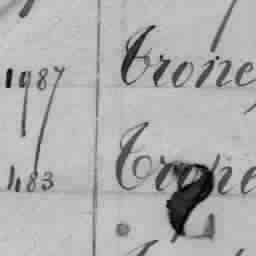 1987 Trone
1483 Trone